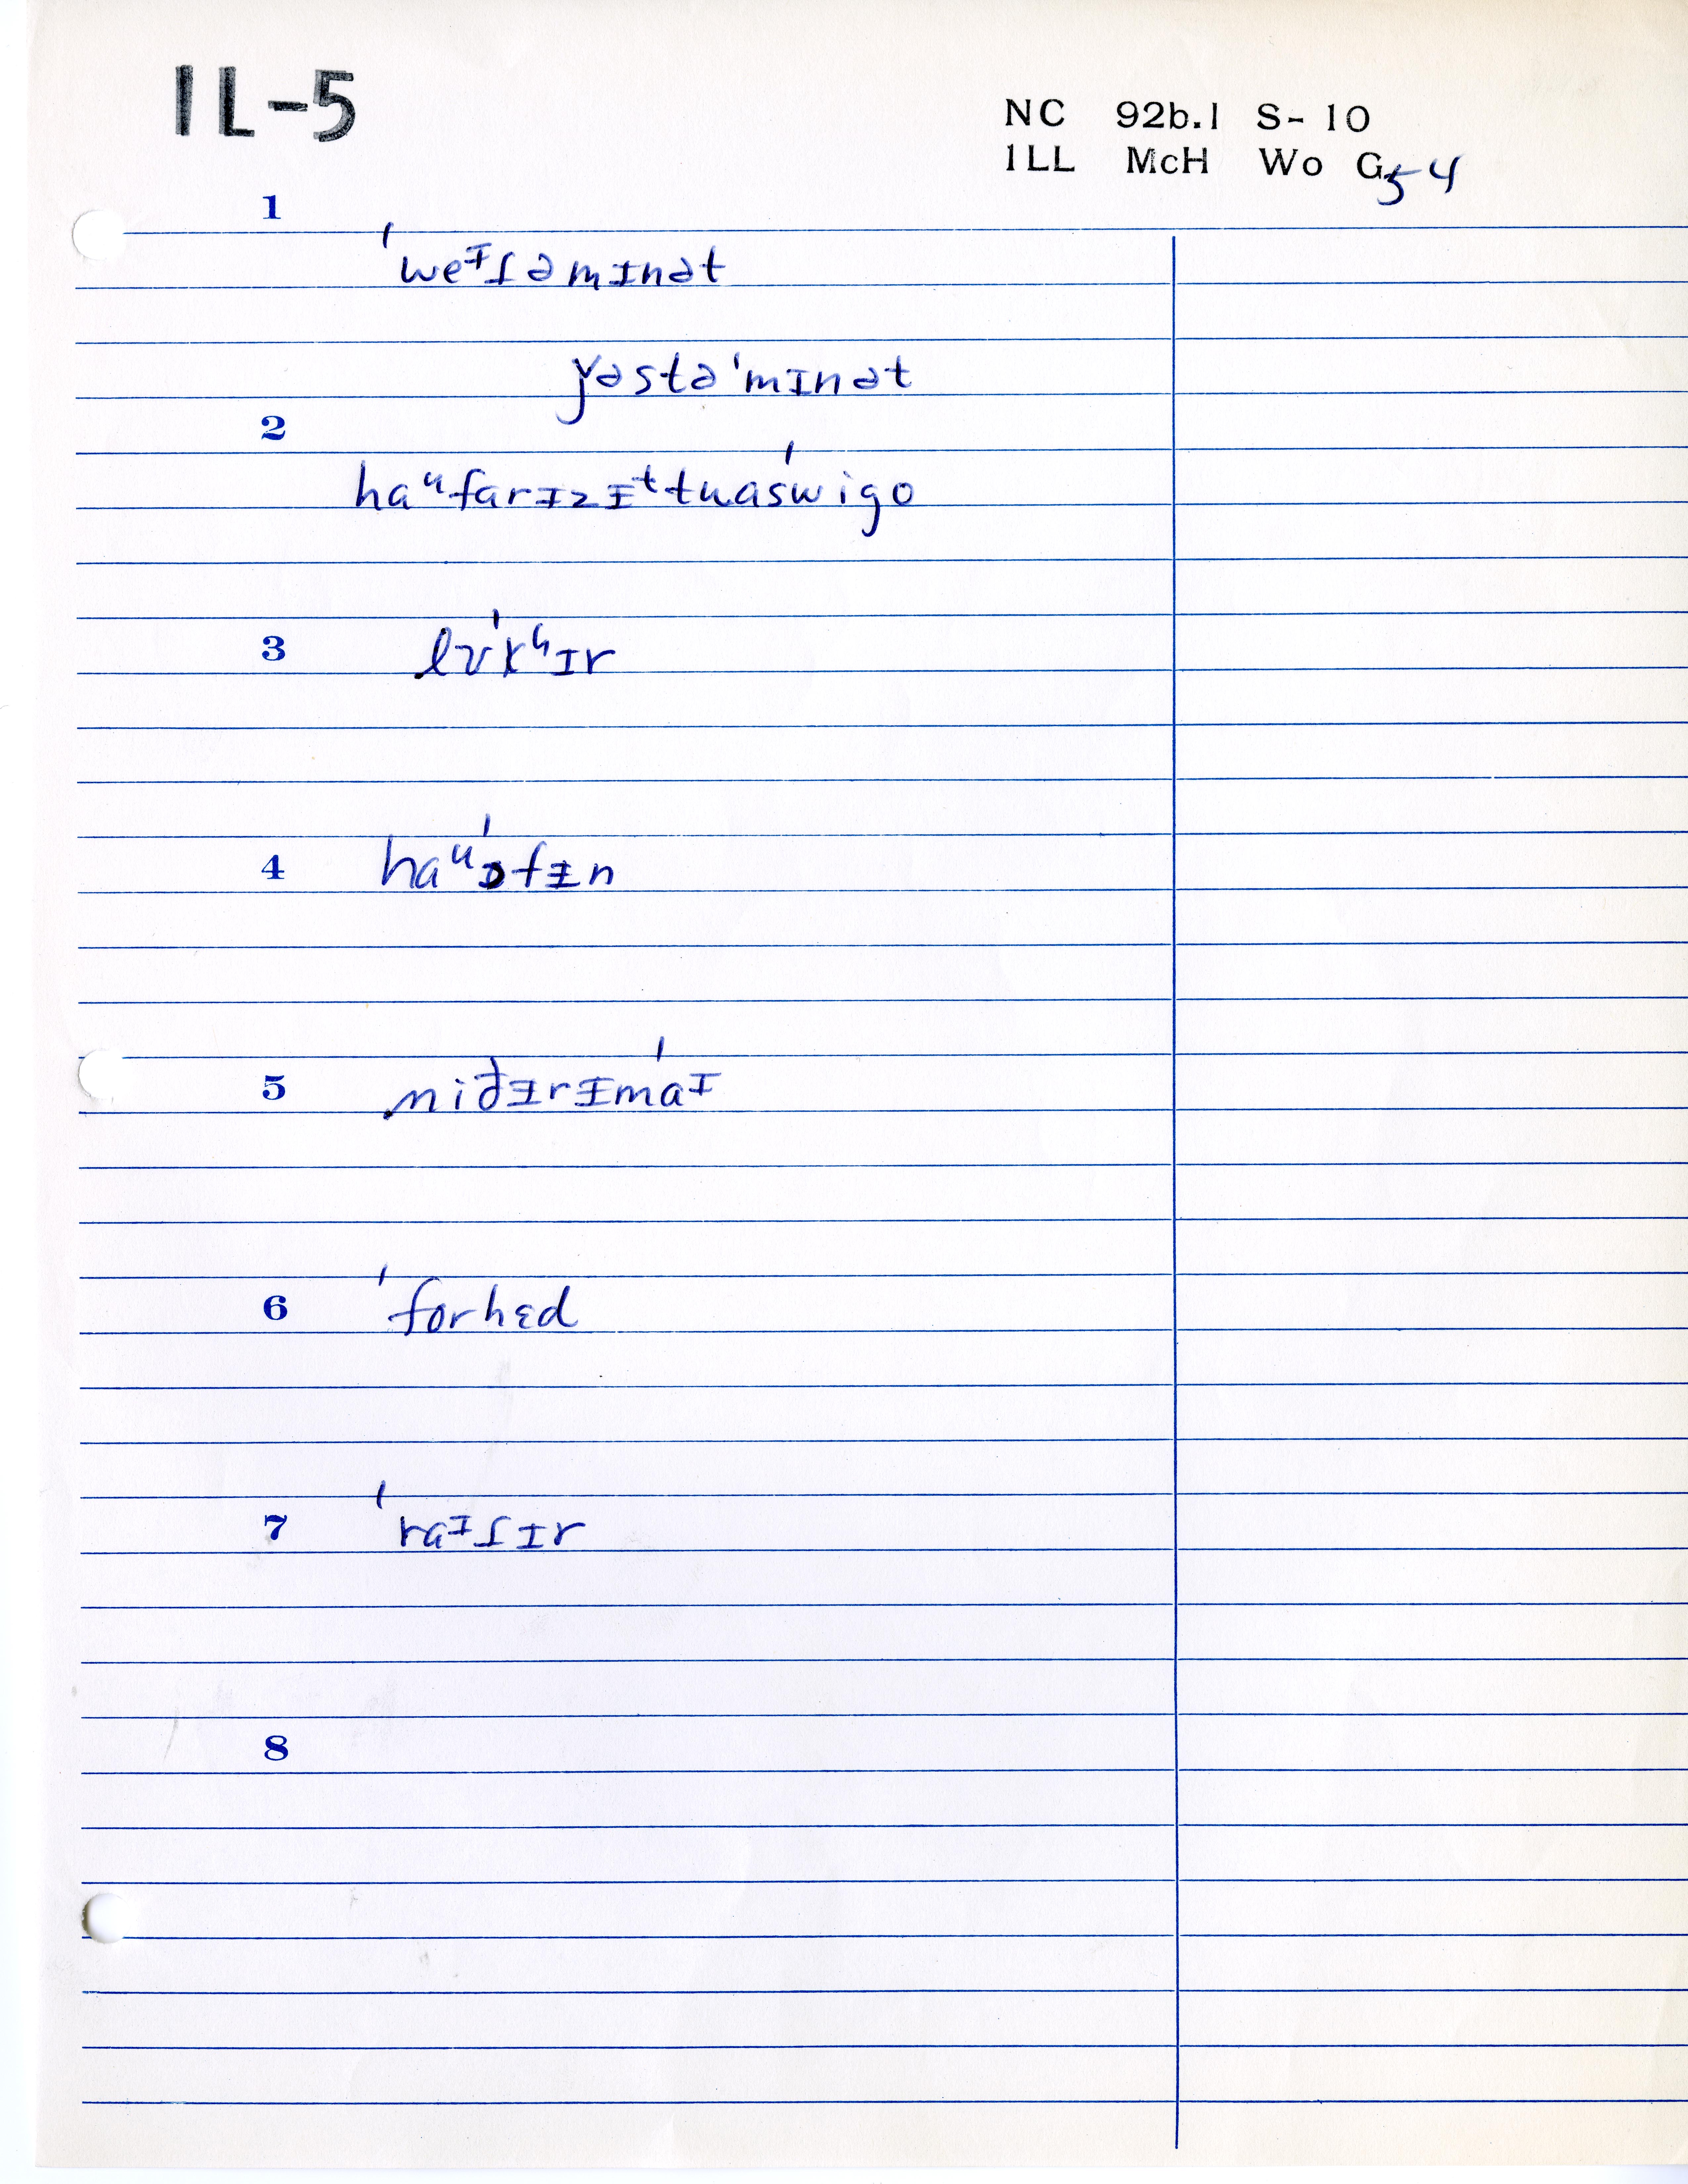 IL-5
NC 92b.1 S-10
ILL McH Wo G54
1
ˈweᶦʃəmɪnət
yəstəˈmɪnət
2
haᵘfarɪzɪᵗtuaˈswigo
3
lʊˈkʰɪr
4
haᵘˈɔfɨn
5
niðɨrɨˈmaᶦ
6
ˈforhɛd
7
ˈraᶦʃɪr
8